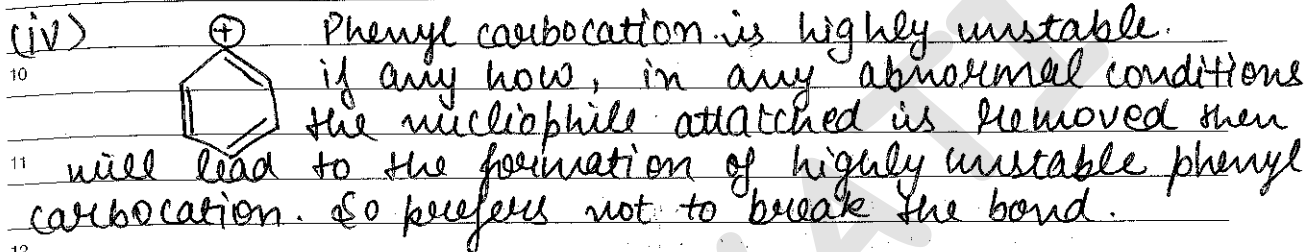 (iv) ⊕ Phenyl carbocation is highly unstable.
10 if any how, in any abnormal conditions
the nucliophile attatched is removed then
11 will lead to the formation of highly unstable phenyl
carbocation. So prefers not to break the bond.
12